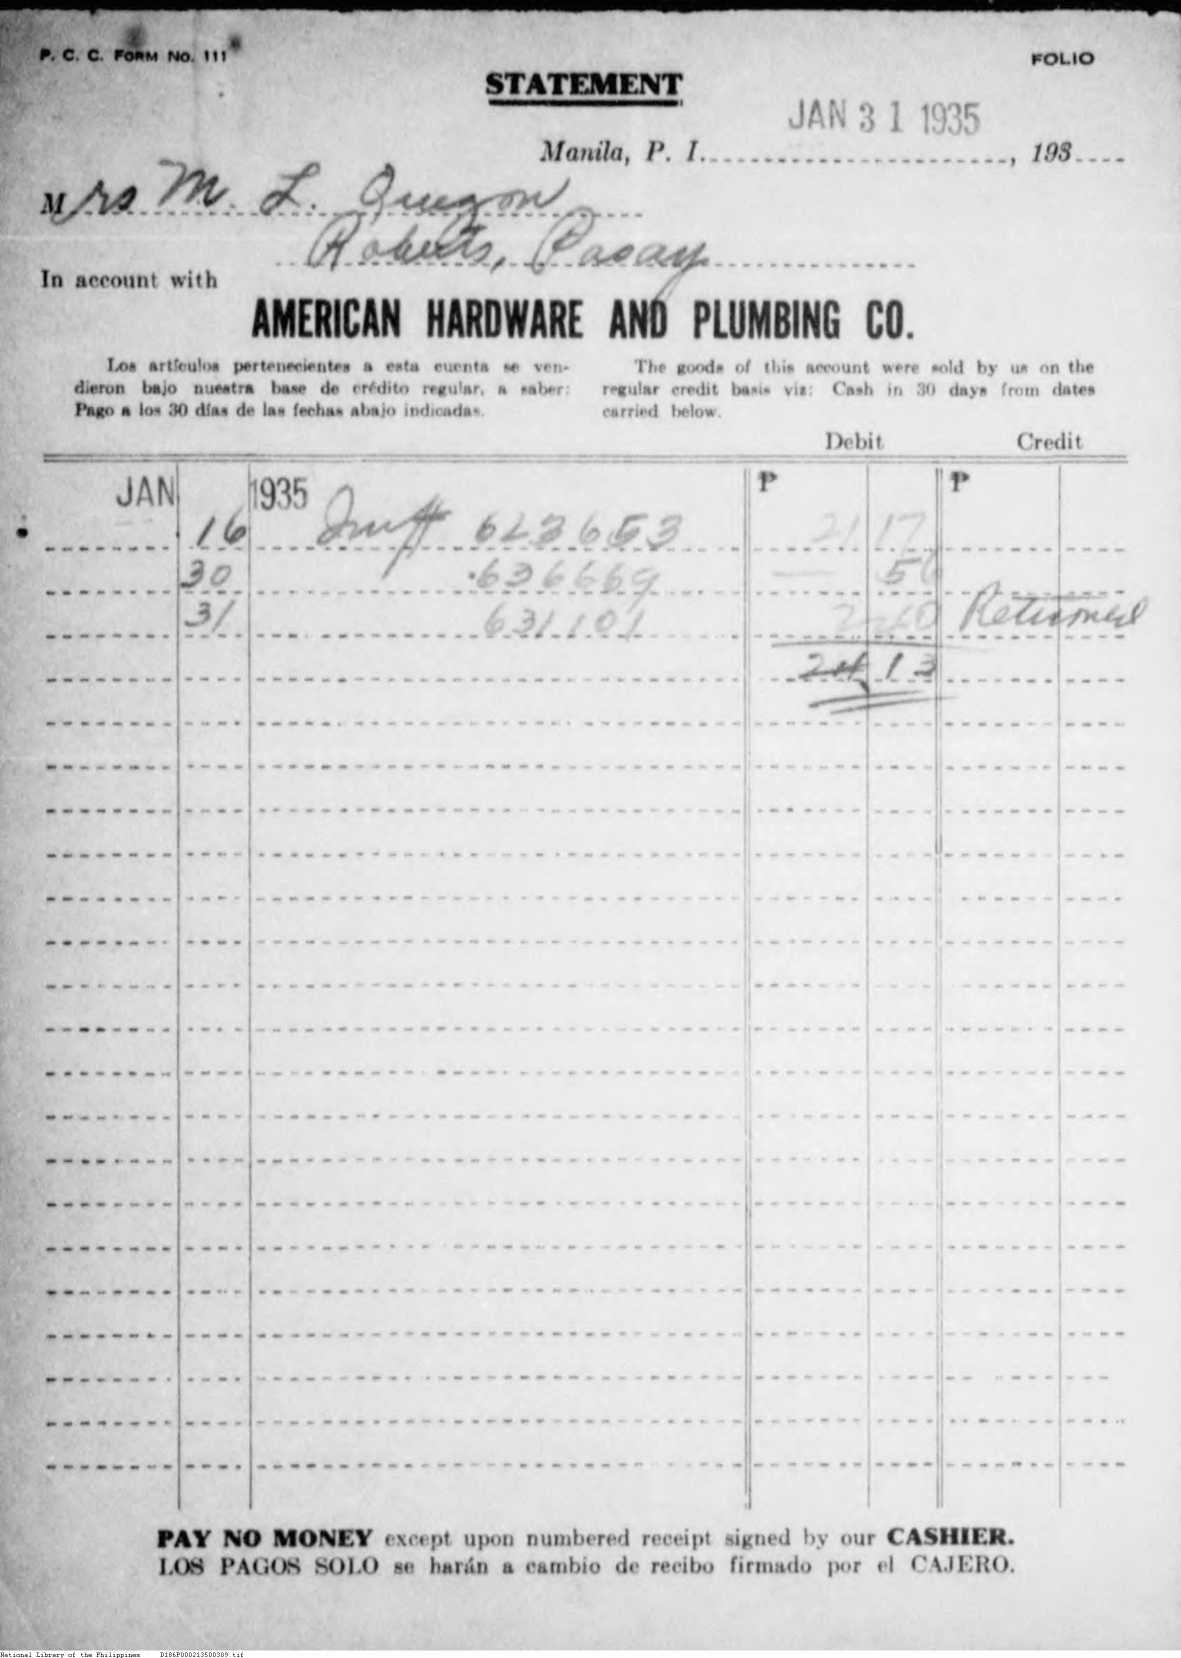 P. C. C. FORM NO. 111
FOLIO
STATEMENT
JAN 31 1935
Manila, P. I. , 193
Mrs M. L. Quezon
Roberts, Pasay
In account with
AMERICAN HARDWARE AND PLUMBING CO.
Los artículos pertenecientes a esta cuenta se ven-
dieron bajo nuestra base de crédito regular, a saber:
Pago a los 30 días de las fechas abajo indicadas.
The goods of this account were sold by us on the
regular credit basis viz: Cash in 30 days from dates
carried below.
Debit Credit
JAN 1935 ₱ ₱
16 623653 21 17
30 636669 — 56
31 631101 Returned
24 13
PAY NO MONEY except upon numbered receipt signed by our CASHIER.
LOS PAGOS SOLO se harán a cambio de recibo firmado por el CAJERO.
National Library of the Philippines D186P000213500309.tif